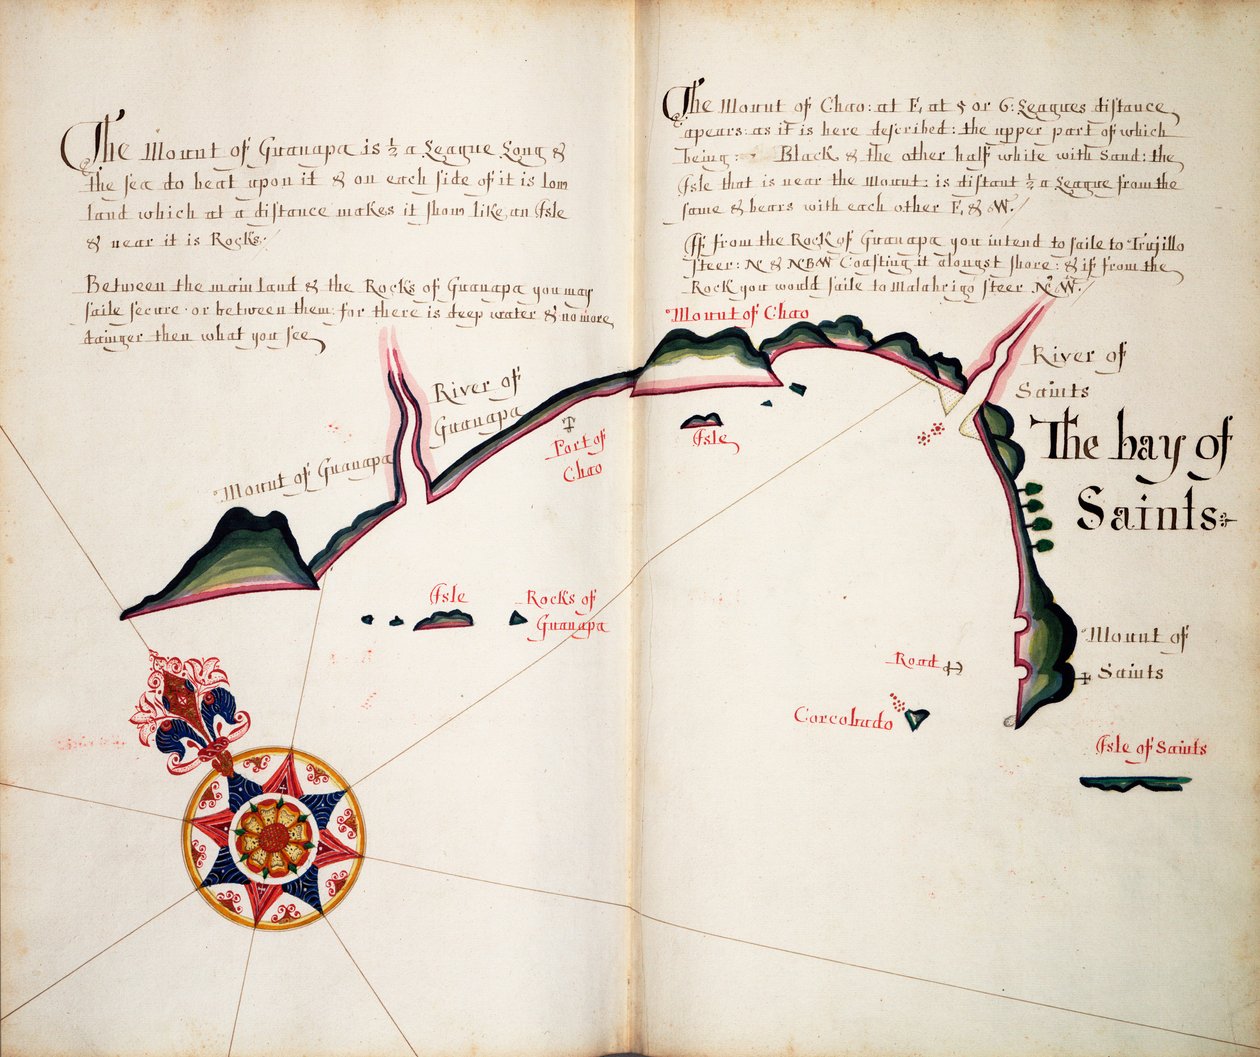 The Mount of Guanapa is ½ a League Long &
the sea do beat upon it & on each side of it is low
land which at a distance makes it show like an Isle
& near it is Rocks.
Between the main land & the Rocks of Guanapa you may
saile secure or between them: for there is deep water & no more
dainger then what you see
The Mount of Chao: at E, at 5 or 6: Leagues distance
apears: as it is here described: the upper part of which
being: Black & the other half white with Sand: the
Isle that is near the Mount: is distant ½ a League from the
same & bears with each other E, & W.
If from the Rock of Guanapa you intend to saile to Trujillo
steer: N & NBW Coasting it alongst shore: & if from the
Rock you would saile to Malabrigo steer N W.
Mount of Chao
River of
Saints
River of
Guanapa
The bay of
Saints
Port of
Chao
Isle
Mount of Guanapa
Isle
Rocks of
Guanapa
Mount of
Saints
Road
Corcobado
Isle of Saints